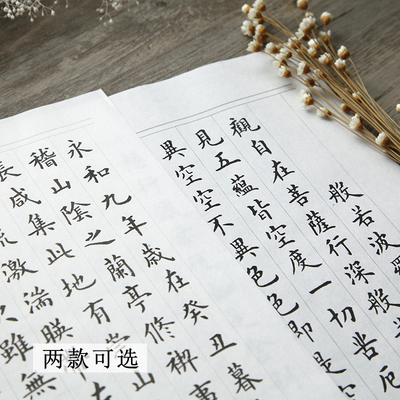 般若波羅
觀自在菩薩行深般
見五蘊皆空度一切苦厄
異空空不異色色即是空
永和九年歲在癸丑暮
稽山陰之蘭亭脩禊事
長咸集此地有崇山
激湍暎
雖無
两款可选